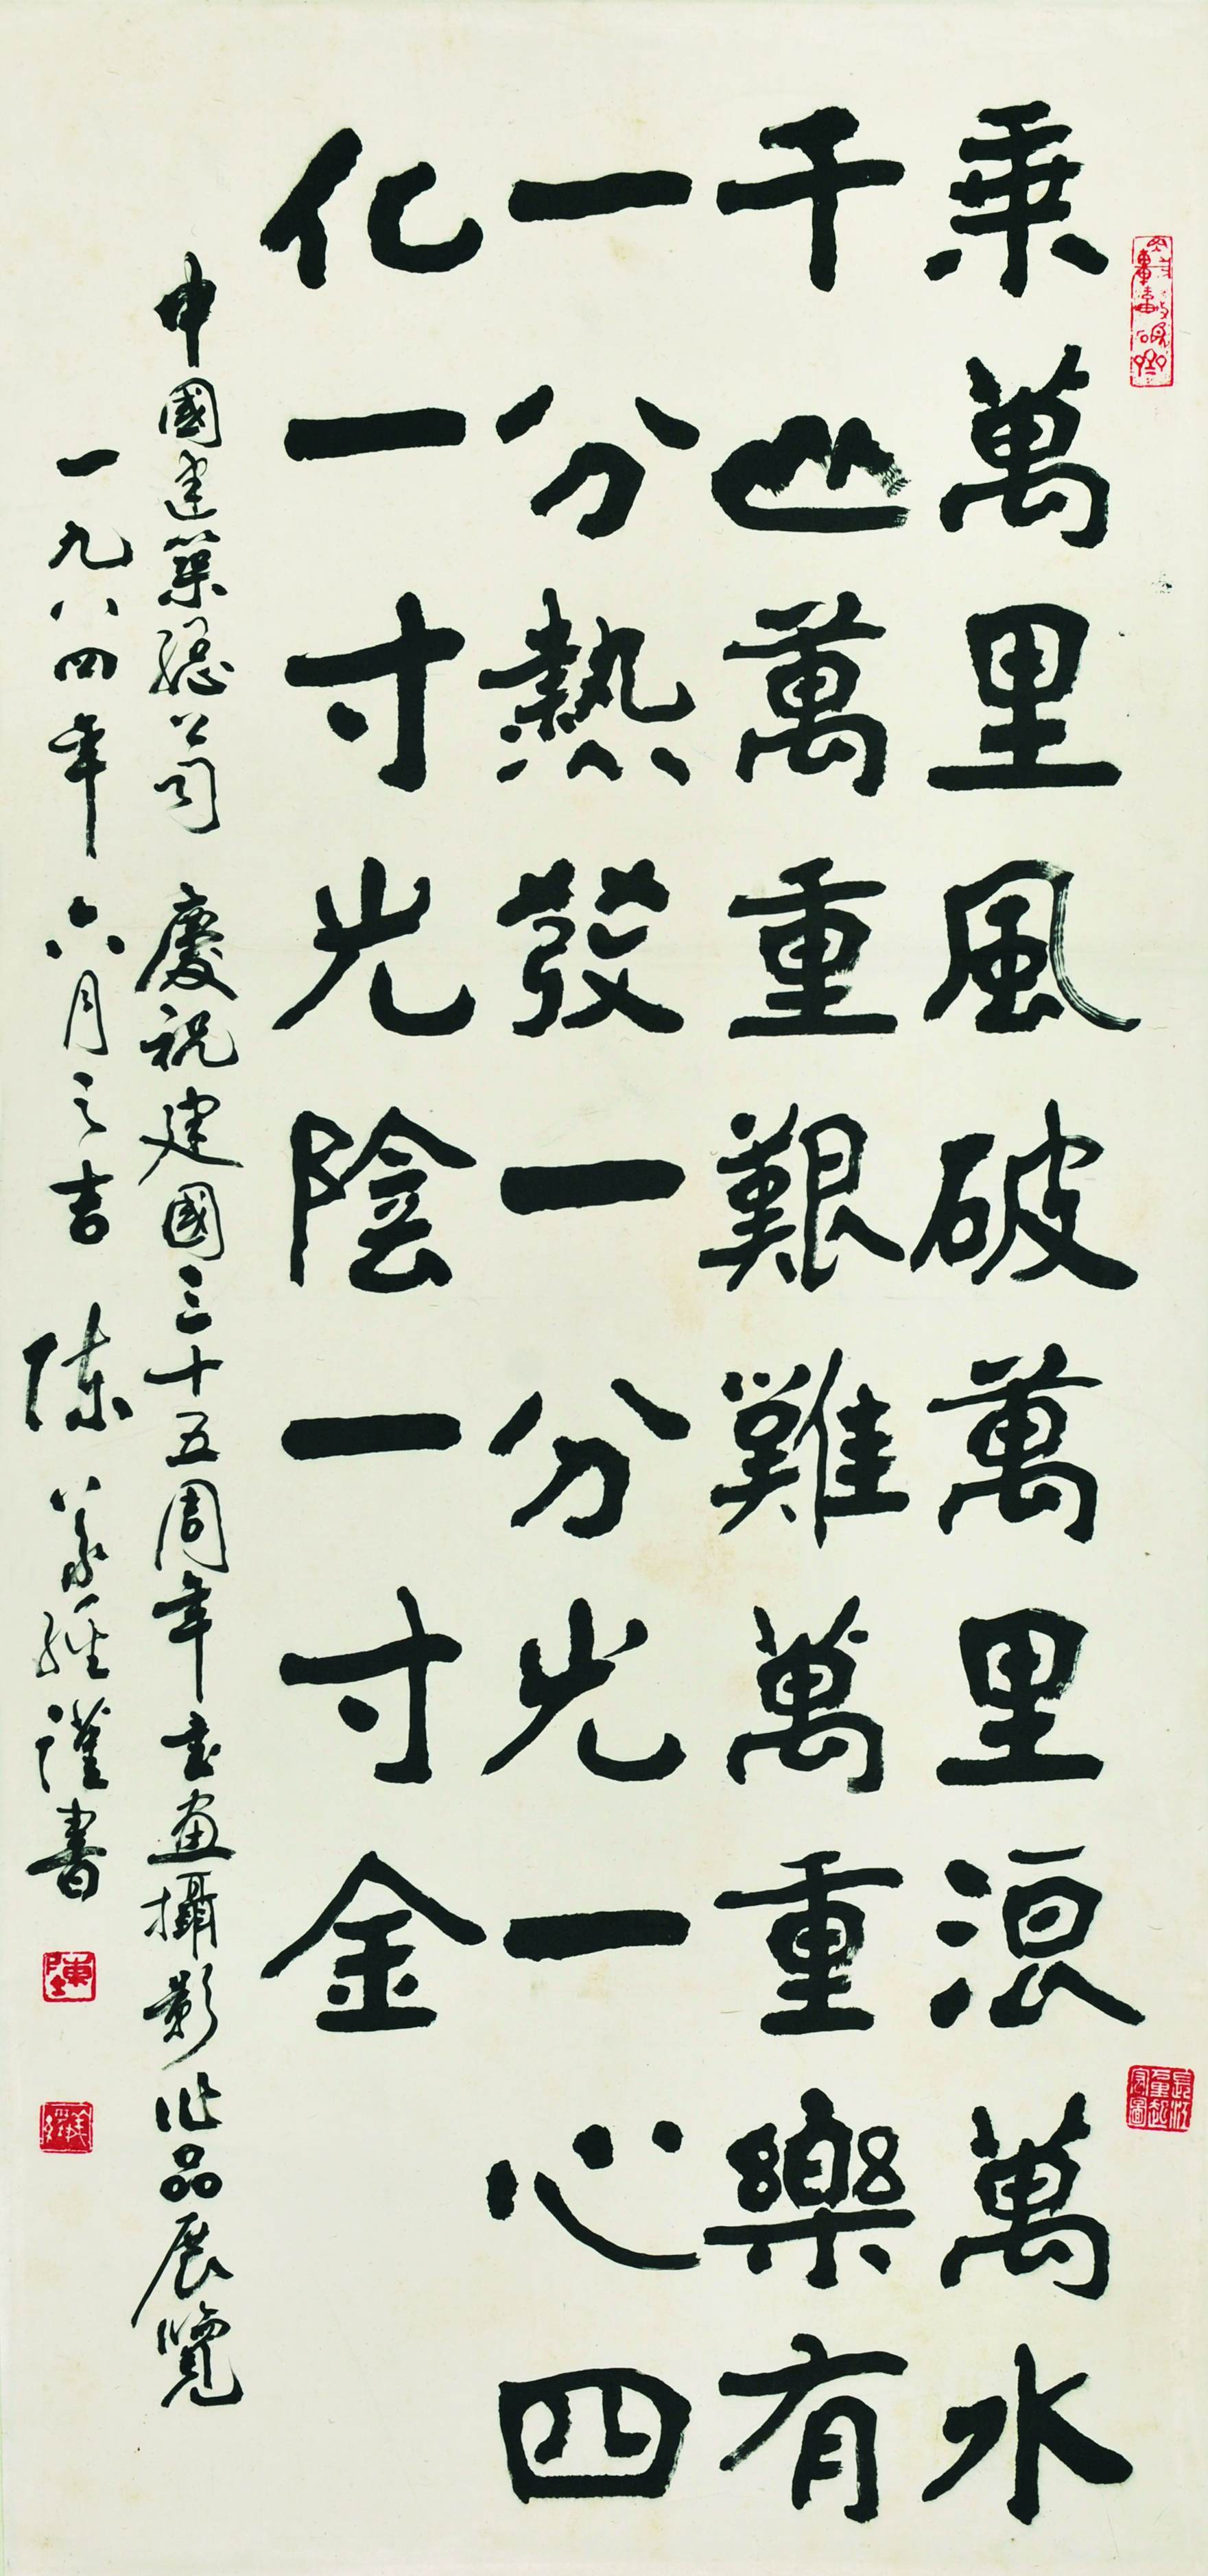 乘萬里風破萬里浪萬水
千山萬重艱難萬重樂有
一分熱發一分光一心四
化一寸光陰一寸金
中國建築總公司 慶祝建國三十五周年書畫攝影作品展覽
一九八四年六月之吉 陳義經謹書
陳
義經